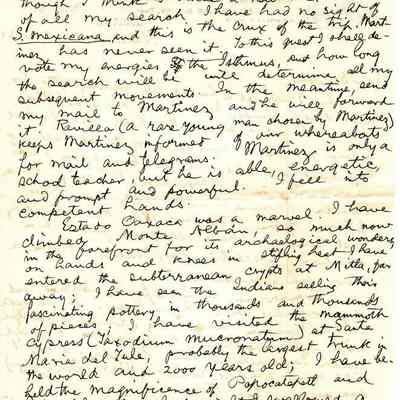 though I think is
of all my search. I have had no sight of
S. mexicana and this is the crux of the trip. Mart-
inez has never seen it. To this quest I shall de-
vote my energies to the Isthmus, but how long
the search will be will determine all my
subsequent movements. In the meantime, send
my mail to Martinez and he will forward
it. Revilla (a rare young man chosen by Martinez)
keeps Martinez informed of our whereabouts
for mail and telegrams. Martinez is only a
school teacher but he is able, energetic,
and prompt and powerful. I fell into
competent hands.
Estado Oaxaca was a marvel. I have
climbed Monte Albán, so much now
in the forefront for its archaeological wonders,
on hands and knees in stifling heat I have
entered the subterranean crypts at Mitla, far
away; I have seen the Indians selling their
fascinating pottery in thousands and thousands
of pieces; I have visited the mammoth
cypress (Taxodium mucronatum) at Santa
Maria del Tule, probably the largest trunk in
the world and 2000 years old; I have be-
held the magnificence of Popocatepetl and